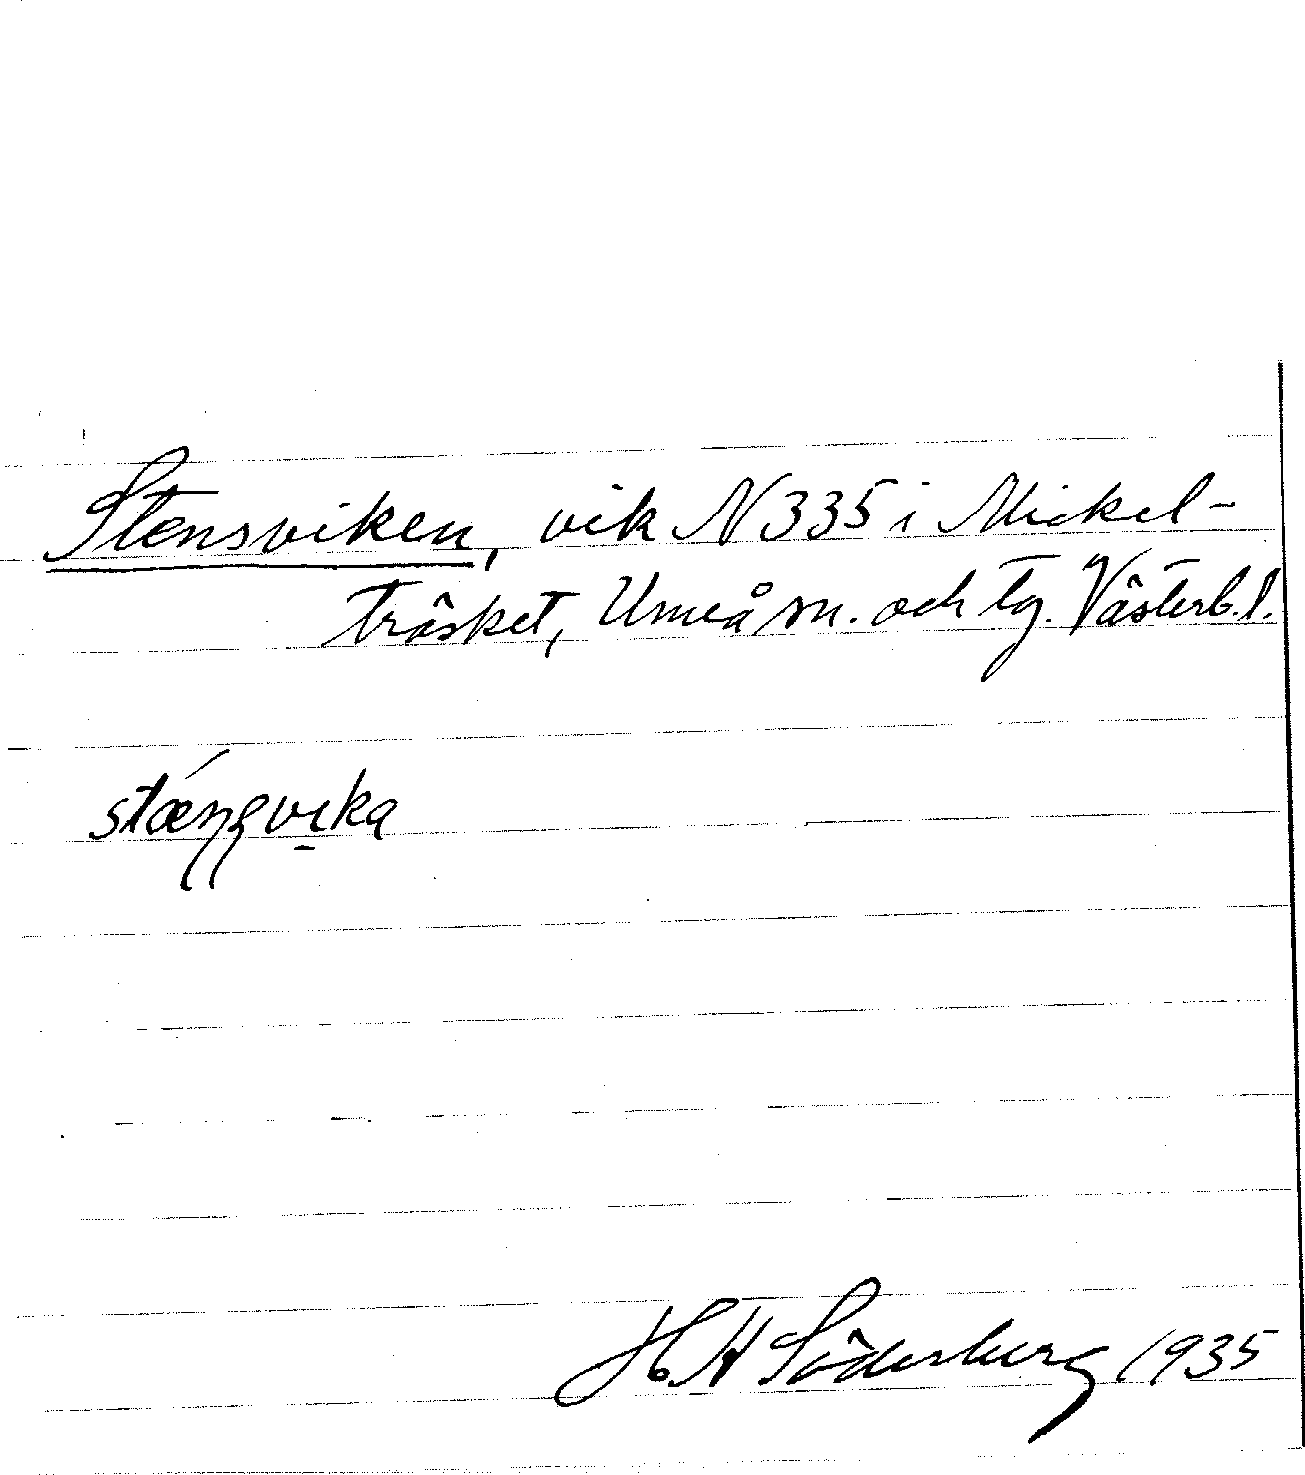 Stensviken, vik N 335 i Mickel-
träsket, Umeå sn. och tg. Västerb. l.
H H Söderberg 1935